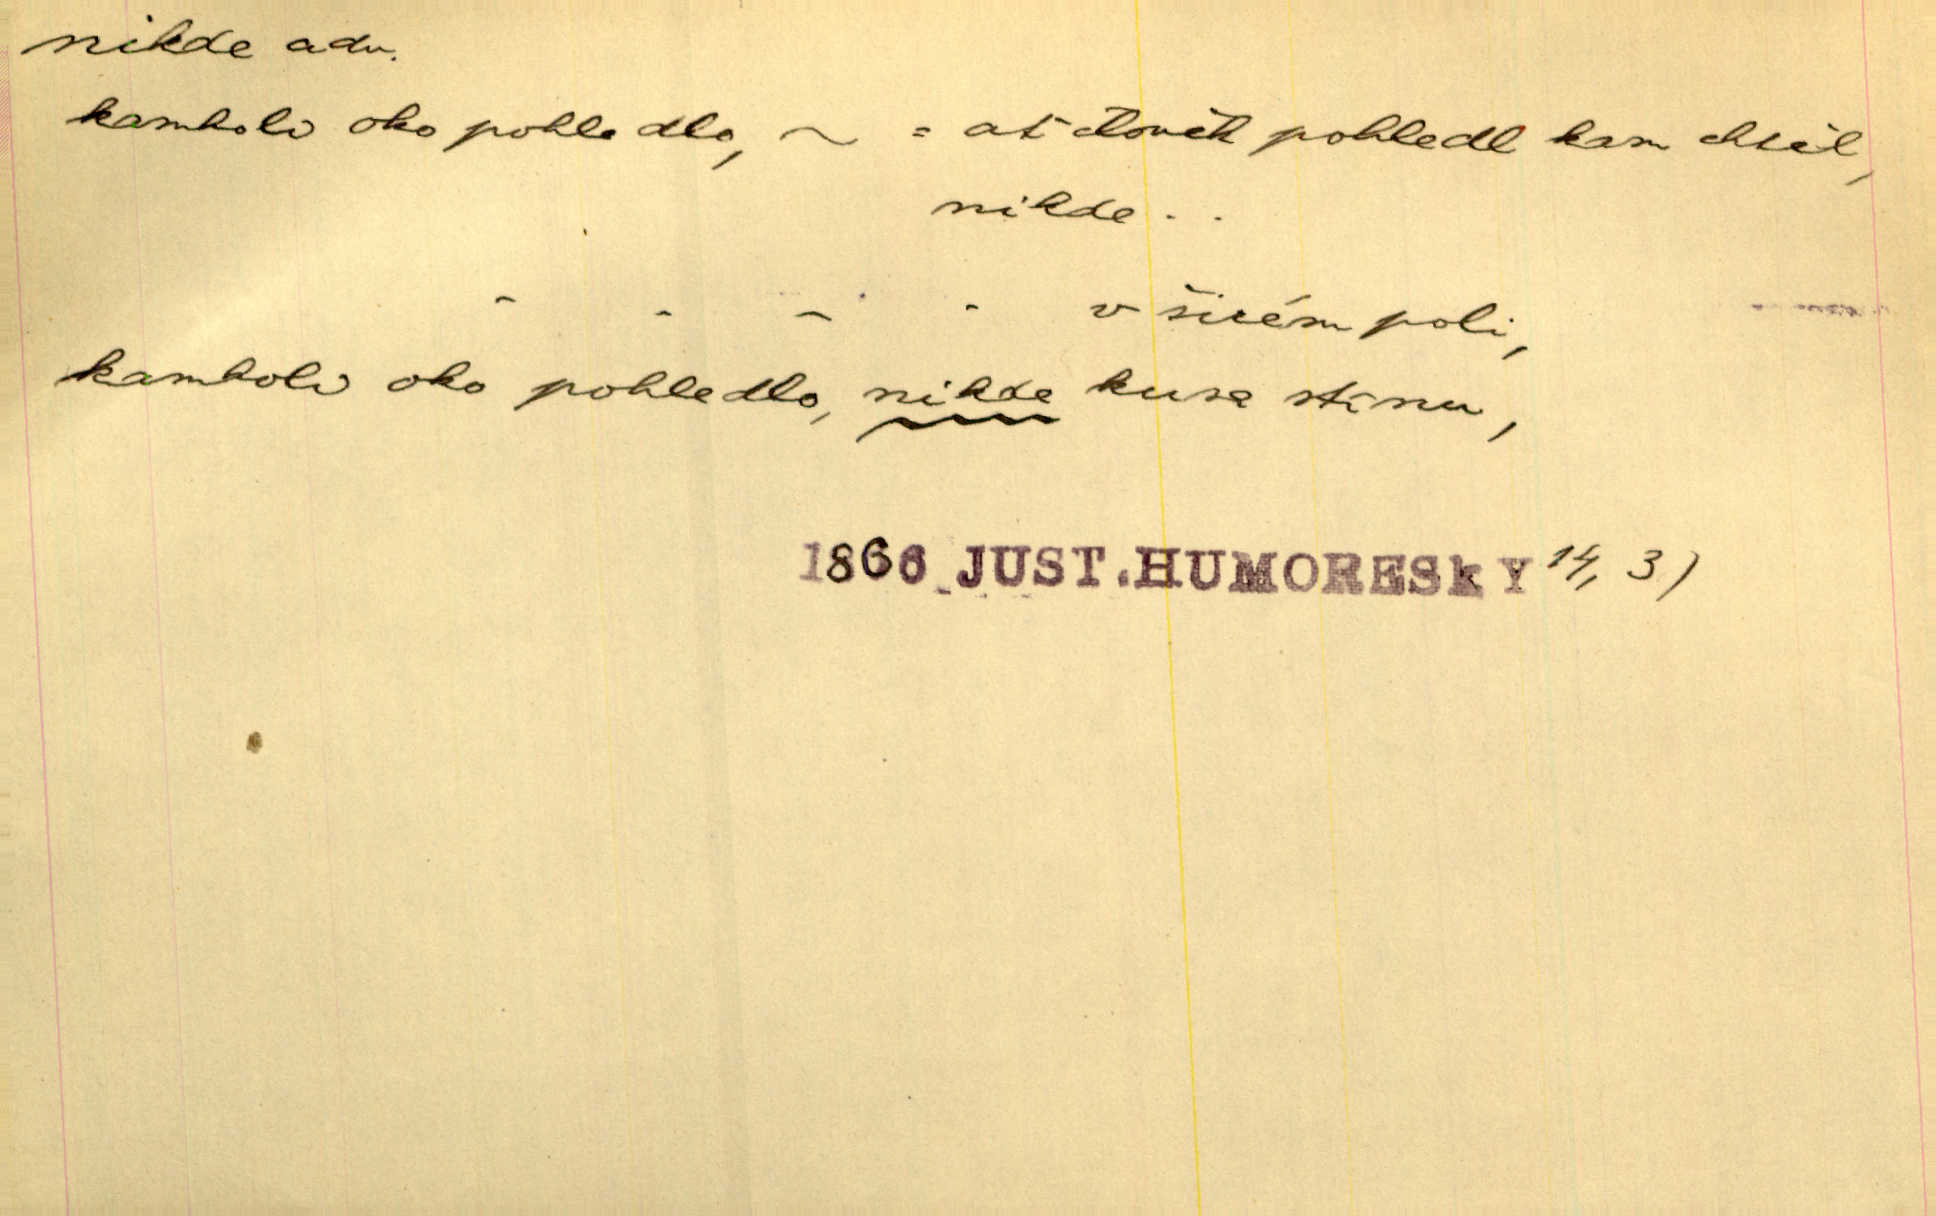 nikde adv.
kamkoliv oko pohledlo, ~ = ať člověk pohledl kam chtěl,
nikde . .
- - - - v širém poli,
kamkoliv oko pohledlo, nikde kusa stínu,
1866 JUST. HUMORESkY 14, 3)